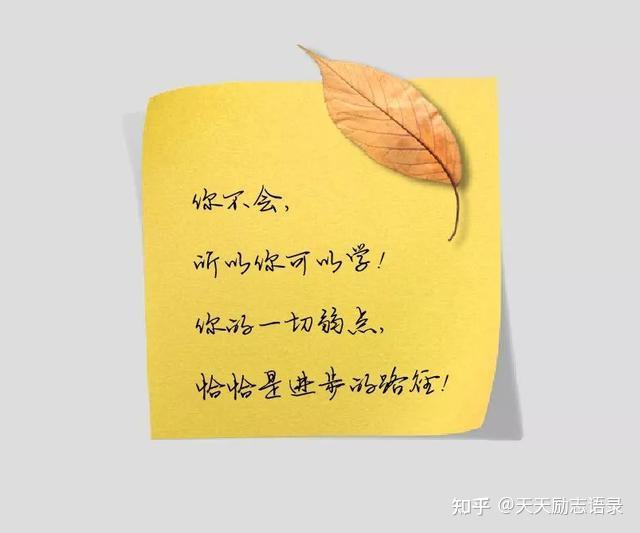 你不会,
所以你可以学!
你的一切弱点,
恰恰是进步的路径!
知乎 @天天励志语录